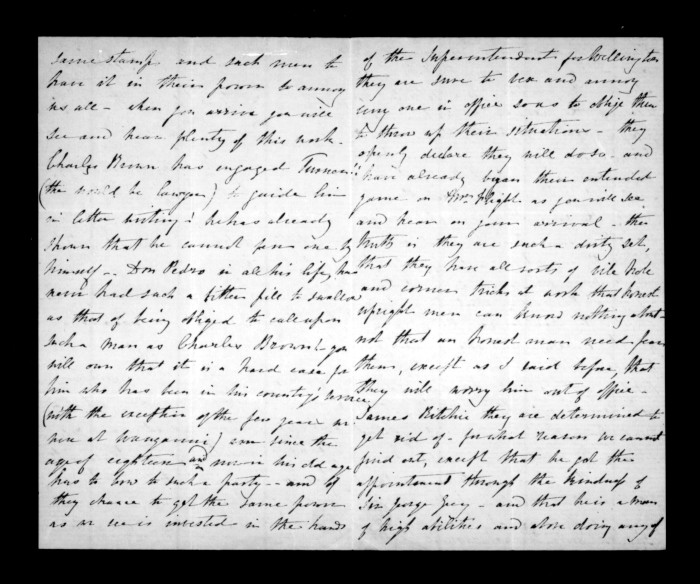 same stamp and such men to
have it in their power to annoy
us all - when you arrive you will
see and hear plenty of this work -
Charles Brown has engaged
(the would be lawyer) to guide him
in letter writing! he has already
shown that he cannot pen one by
himself -- Don Pedro in all his life, has
never had such a bitter pill to swallow
as that of being obliged to call upon
such a man as Charles Brown & you
will own that it is a hard case for
him who has been in his country's service
(with the exception of the few years
now at Wanganui) ever since the
age of eighteen and now in his old age
has to bow to such a party -- and if
they chance to get the same power
as or is invested in the hands
of the Superintendent for Wellington
they are sure to vex and annoy
every one in office so as to oblige them
to throw up their situations - they
openly declare they will do so - and
have already began their intended
game on Mr Flight as you will see
and hear on your arrival - the
truth is they are such a dirty set,
that they have all sorts of vile hole
and corner tricks at work that honest
upright men can know nothing about -
not that an honest man need fear
them, except as I said before, that
they will worry him out of office -
James Ritchie they are determined to
get rid of - for what reason we cannot
find out, except that he got the
appointment through the kindness of
Sir George Grey - and that he is a man
of high abilities and above doing any of